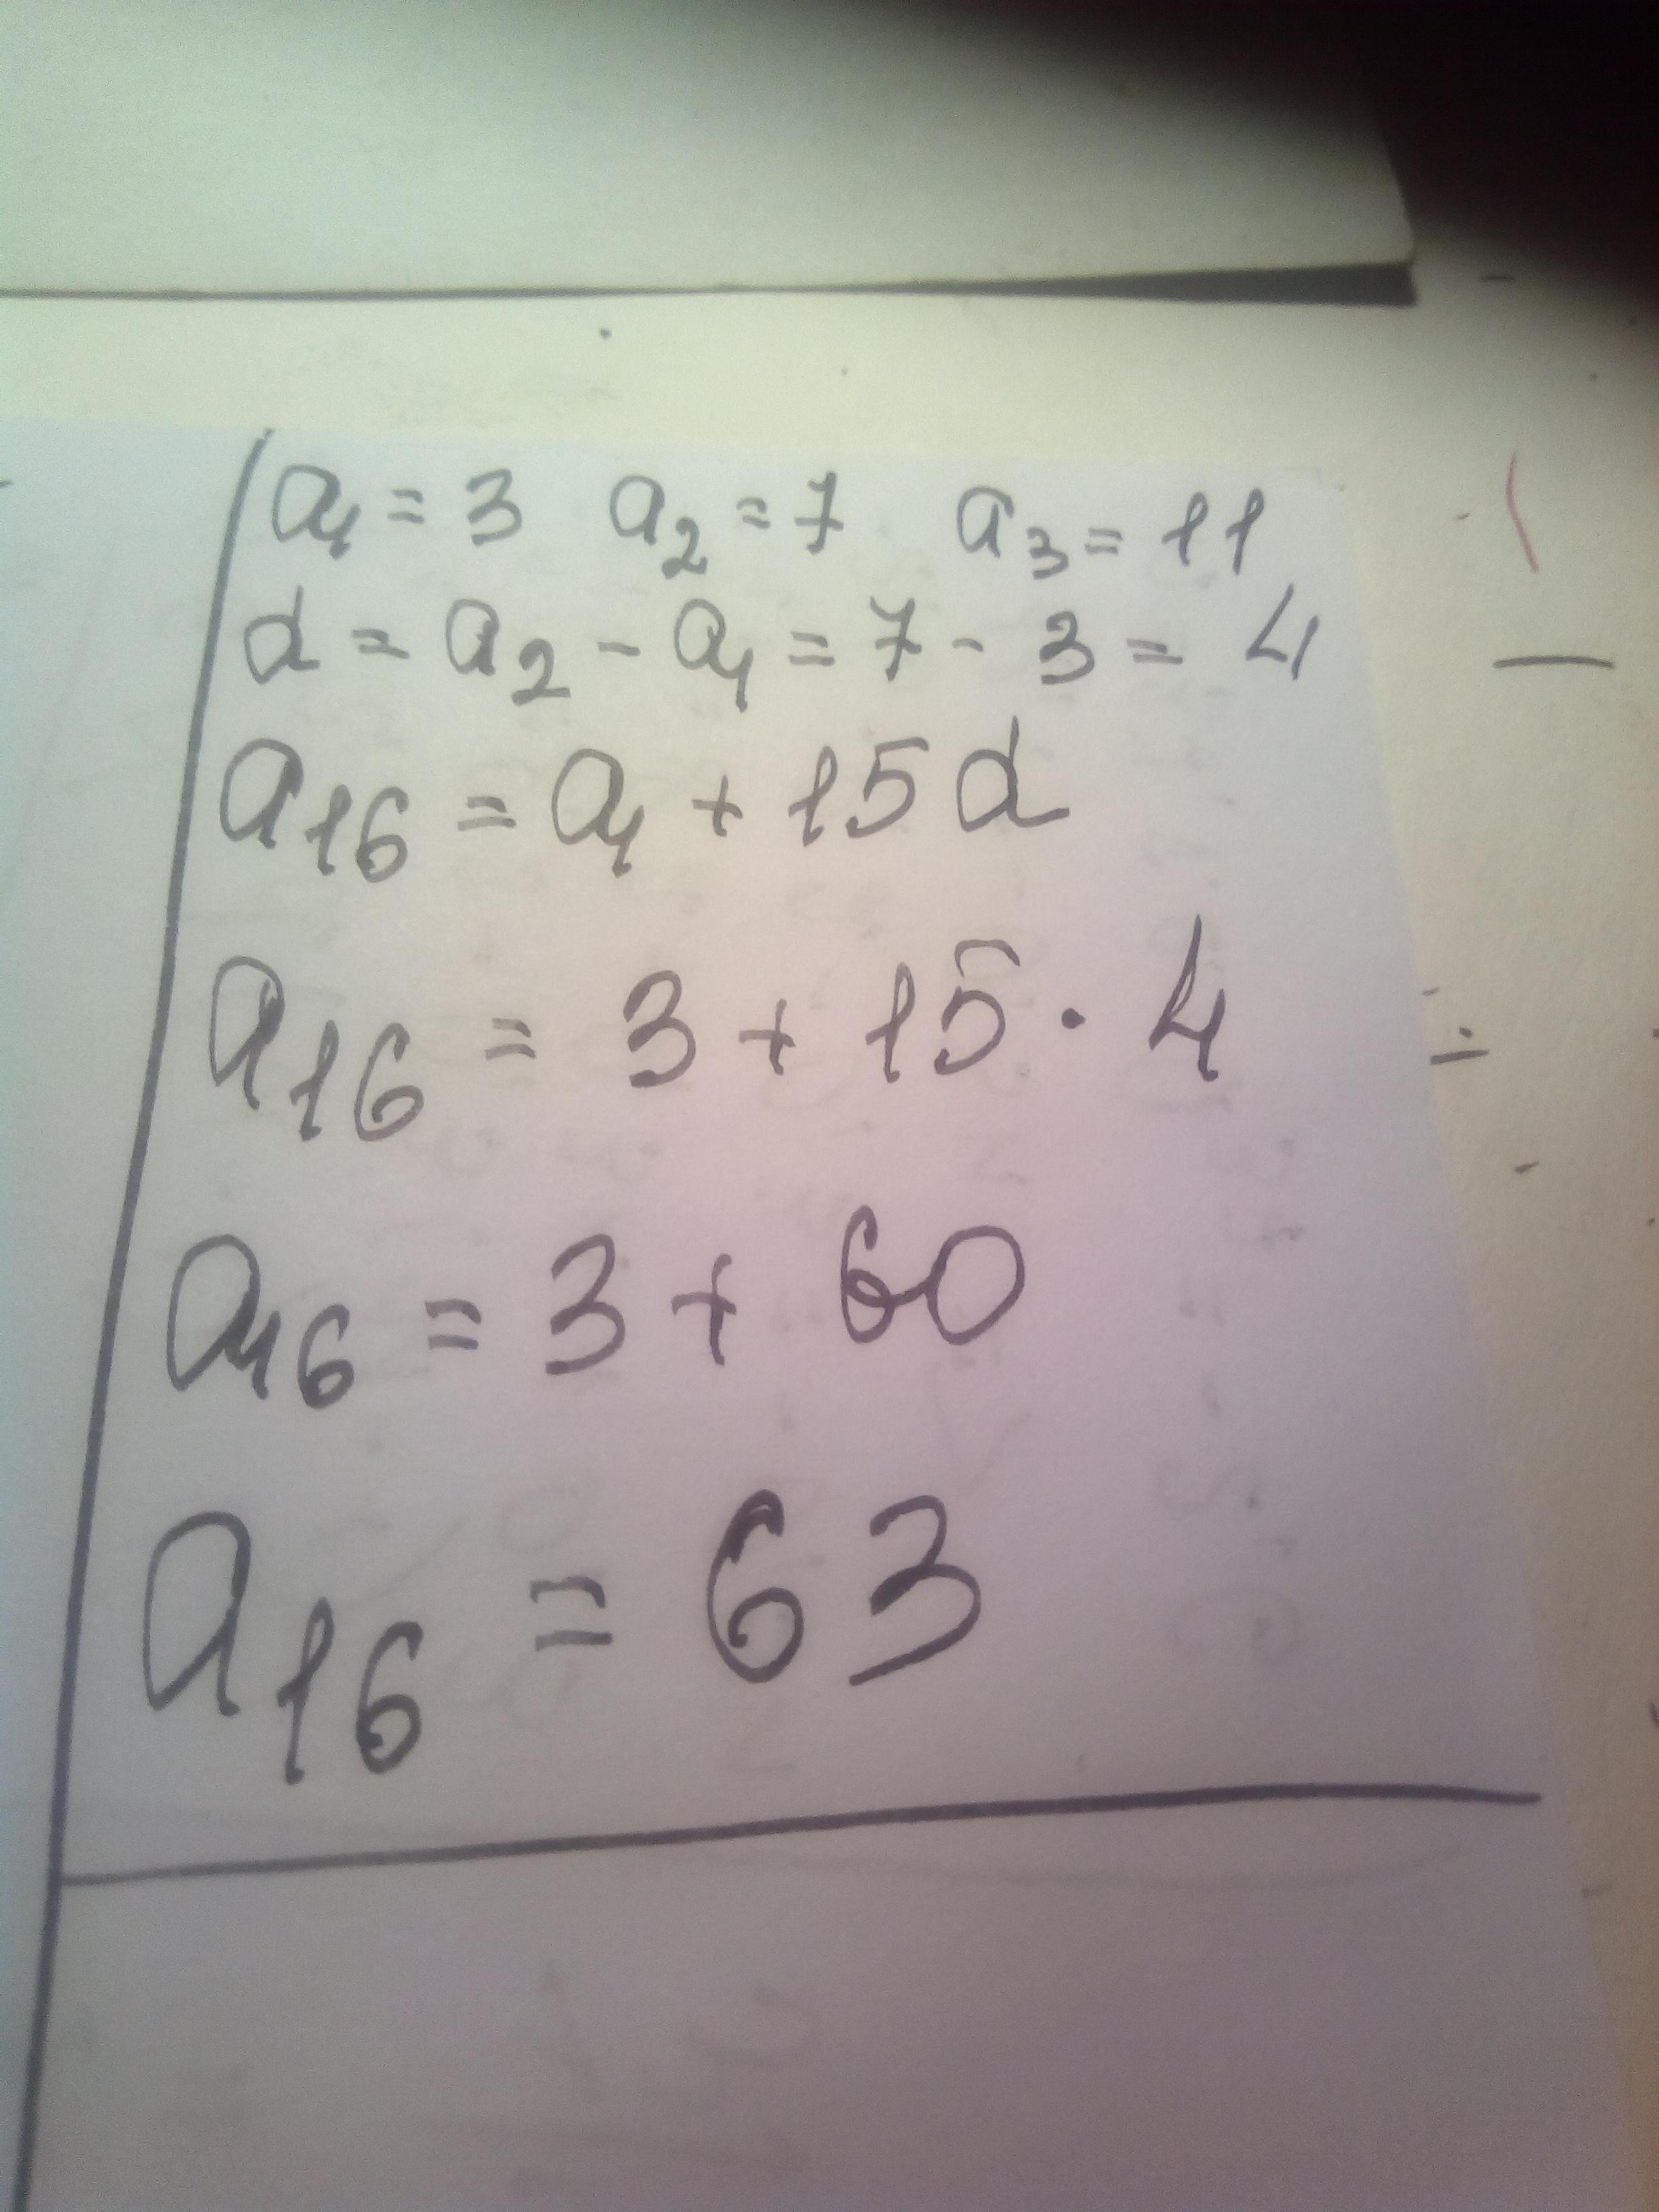 a₁ = 3 a₂ = 7 a₃ = 11
d = a₂ - a₁ = 7 - 3 = 4
a₁₆ = a₁ + 15d
a₁₆ = 3 + 15 · 4
a₁₆ = 3 + 60
a₁₆ = 63